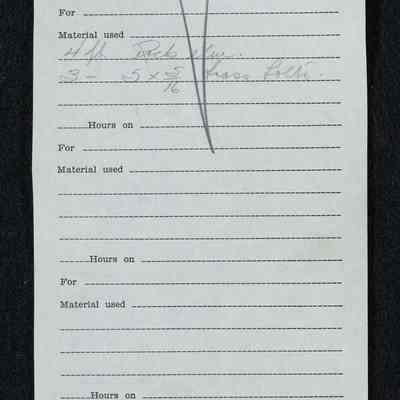 For
Material used
4 ft Rock elm.
3 - 5 x 5/16 brass bolts.
Hours on
For
Material used
Hours on
For
Material used
Hours on